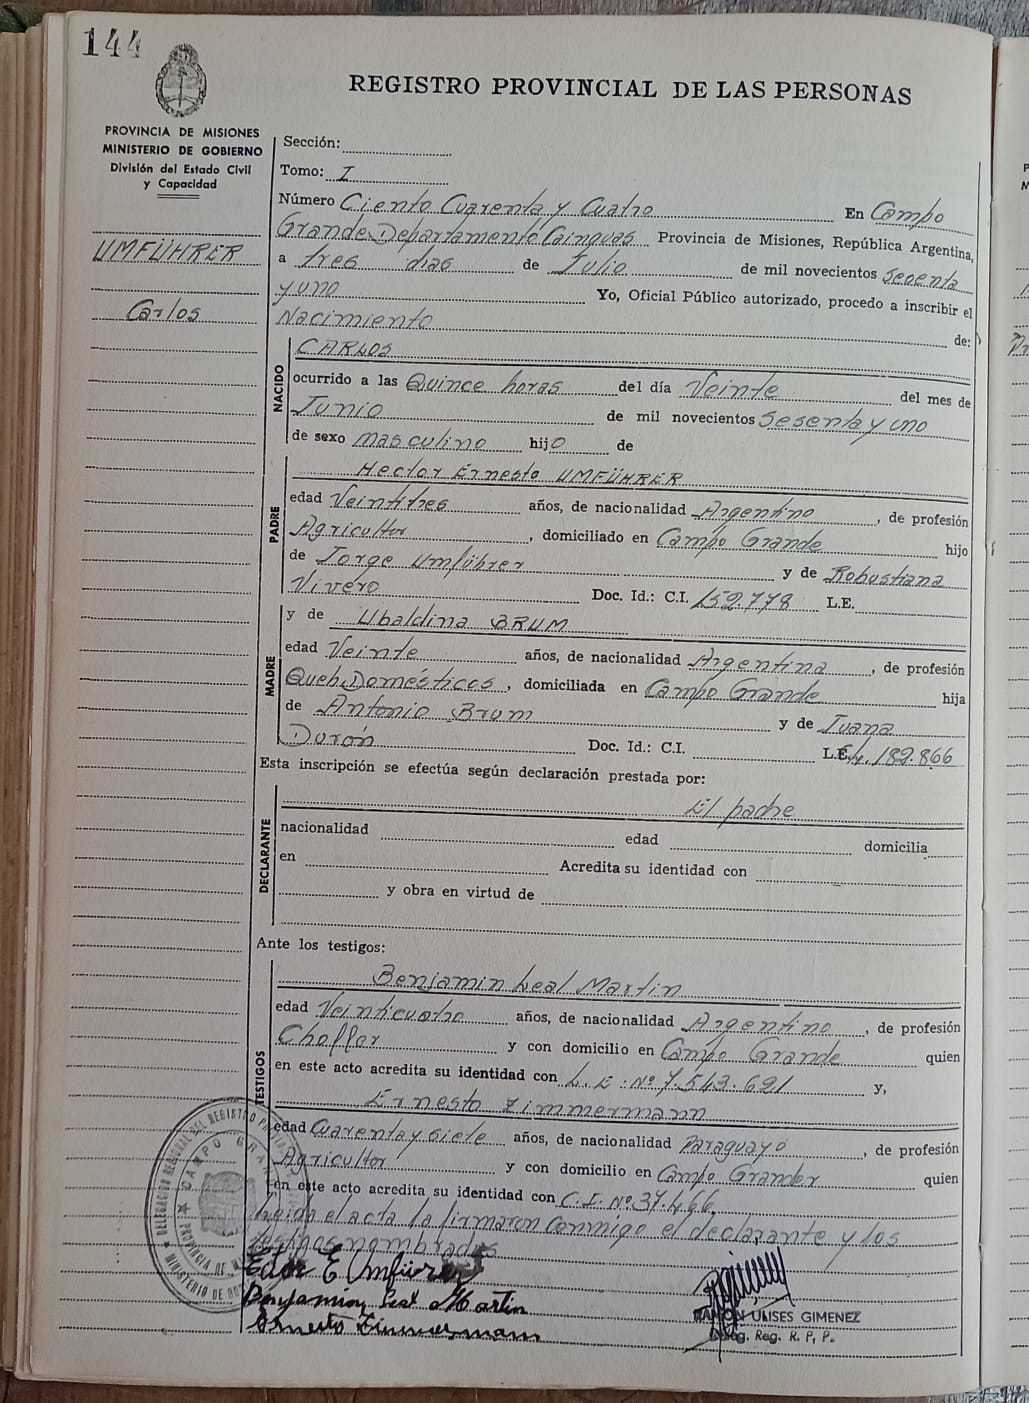 144
REGISTRO PROVINCIAL DE LAS PERSONAS
PROVINCIA DE MISIONES
MINISTERIO DE GOBIERNO
División del Estado Civil
y Capacidad
UMFÜHRER
Carlos
Sección:
Tomo: I
Número Ciento Cuarenta y Cuatro En Campo
Grande, Departamento Cainguas Provincia de Misiones, República Argentina,
a tres dias de Julio de mil novecientos sesenta
y uno Yo, Oficial Público autorizado, procedo a inscribir el
Nacimiento de:
NACIDO
CARLOS
ocurrido a las Quince horas del día Veinte del mes de
Junio de mil novecientos Sesenta y uno
de sexo masculino hijo de
PADRE
Hector Ernesto UMFÜHRER
edad Veintitres años, de nacionalidad Argentino, de profesión
Agricultor, domiciliado en Campo Grande hijo
de Jorge Umführer y de Robustiana
Vivero Doc. Id.: C.I. 152.778 L.E.
MADRE
y de Ubaldina BRUM
edad Veinte años, de nacionalidad Argentina, de profesión
Queh. Domésticos, domiciliada en Campo Grande hija
de Antonio Brum y de Juana
Duron Doc. Id.: C.I. L.E. 182.866
Esta inscripción se efectúa según declaración prestada por:
DECLARANTE
El padre
nacionalidad edad domicilia
en Acredita su identidad con
y obra en virtud de
Ante los testigos:
TESTIGOS
Benjamin Leal Martin
edad Veinticuatro años, de nacionalidad Argentino, de profesión
Choffer y con domicilio en Campo Grande quien
en este acto acredita su identidad con L.E. Nº 7.543.621 y,
Ernesto Zimmermann
edad Cuarenta y siete años, de nacionalidad Paraguayo, de profesión
Agricultor y con domicilio en Campo Grander quien
en este acto acredita su identidad con C.I. Nº 37.466.
Leida el acta la firmaron conmigo el declarante y los
testigos nombrados
Benjamin Leal Martin
Ernesto Zimmermann
RAMON ULISES GIMENEZ
Deleg. Reg. R. P. P.
DELEGACION REGIONAL DEL REGISTRO
CAMPO GRANDE